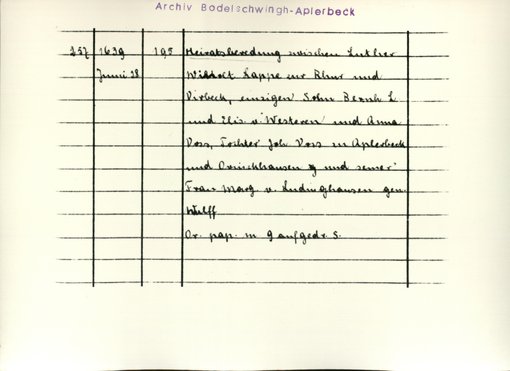 Archiv Bodelschwingh-Aplerbeck
257 1639 195 Heiratsberedung zwischen Luther
Juni 28 Lappe zur Rhur und
einzigen Sohn Bernh L
und Elis. v. Westeren und Anna
Voss, Tochter Joh Voss zu Aplerbeck
und und seiner
Frau Marg. v. Ludinghausen gen.
Wulff
Or. pap. m 9 aufgedr. S.